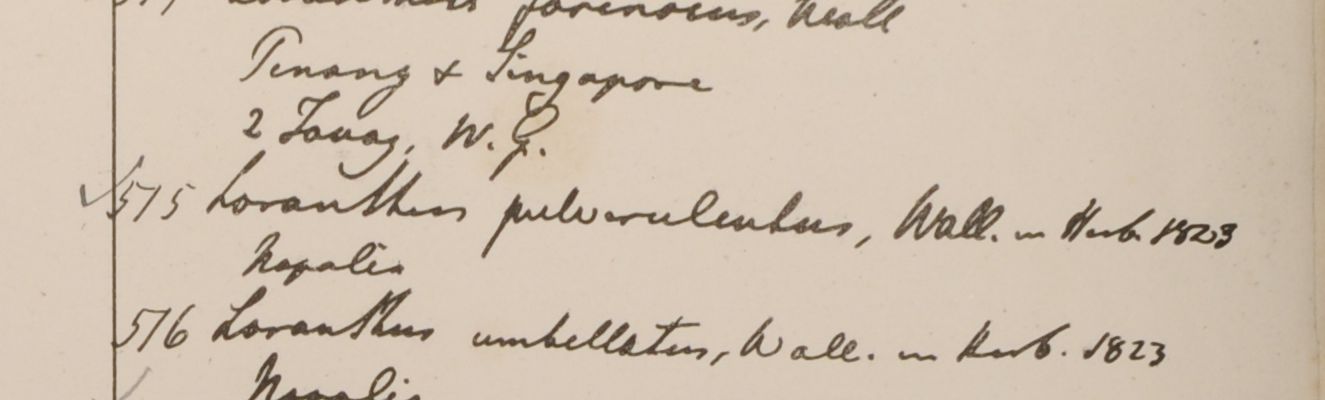 Loranthus farinosus, Wall
Penang & Singapore
2 Tavoy, W. G.
515 Loranthus pulverulentus, Wall. in Herb. 1823
Napalia
516 Loranthus umbellatus, Wall. in Herb. 1823
Napalia